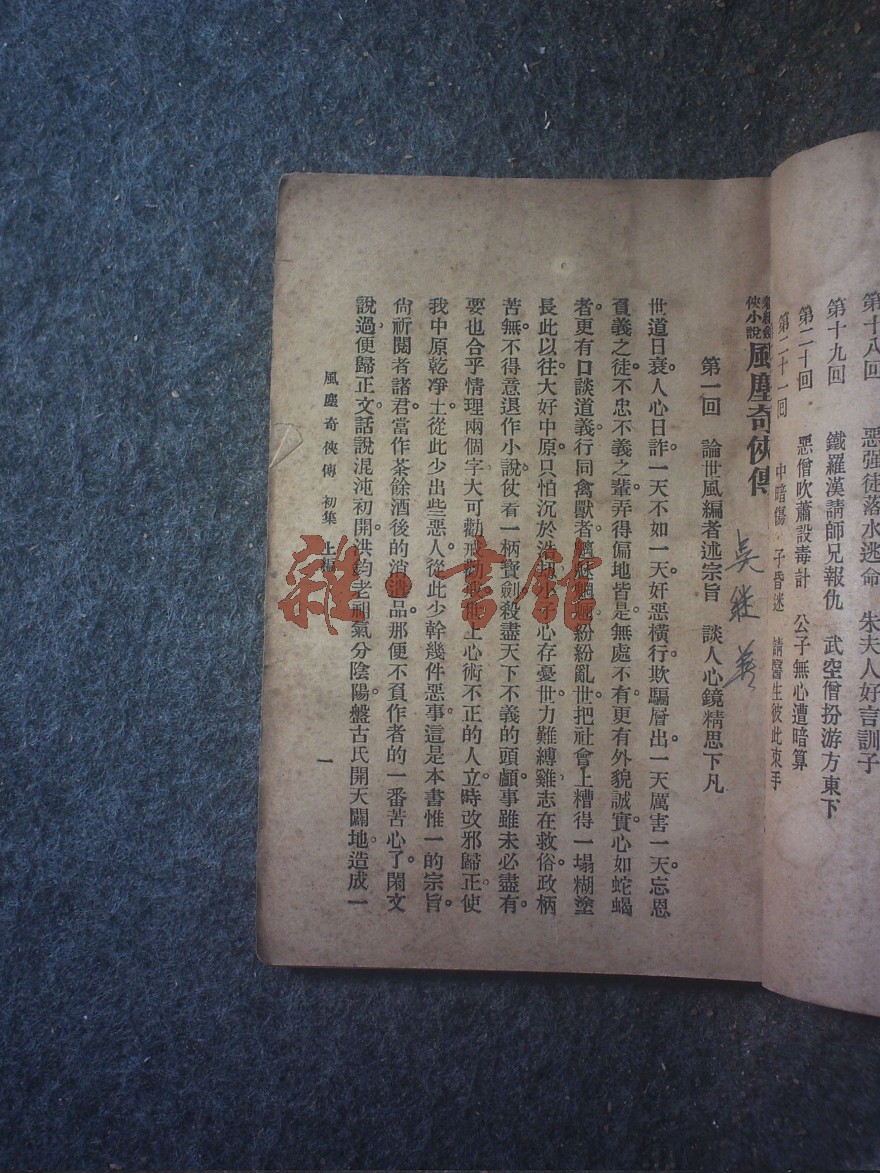 第十八回　惡强徒落水逃命　朱夫人好言訓子
第十九回　鐵羅漢請師兄報仇　武空僧扮游方東下
第二十回　惡僧吹蕭設毒計　公子無心遭暗算
第二十一回　中暗傷　子昏迷　請醫生彼此束手
俠小說風塵奇俠傳
吳
第一回　論世風編者述宗旨　談人心鏡精思下凡
世道日衰。人心日詐。一天不如一天。奸惡橫行。欺騙層出。一天厲害一天。忘恩
負義之徒。不忠不義之輩。弄得偏地皆是。無處不有。更有外貌誠實。心如蛇蝎
者。更有口談道義。行同禽獸者。魑魅魍魎。紛紛亂世。把社會上糟得一塌糊塗
長此以往。大好中原。只怕沉於浩劫。小子心存憂世。力難縛雞。志在救俗。政柄
苦無。不得意退作小說。仗着一柄寶劍。殺盡天下不義的頭顱。事雖未必盡有。
要也合乎情理。兩個字大可勸戒勸戒世上心術不正的人。立時改邪歸正。使
我中原乾凈土。從此少出些惡人。從此少幹幾件惡事。這是本書惟一的宗旨。
尙祈閱者諸君。當作茶餘酒後的消遣品。那便不負作者的一番苦心了。閑文
說過。便歸正文。話說混沌初開。洪鈞老祖氣分陰陽。盤古氏開天闢地。造成一
風塵奇俠傳　初集　上編　一
雜·書館